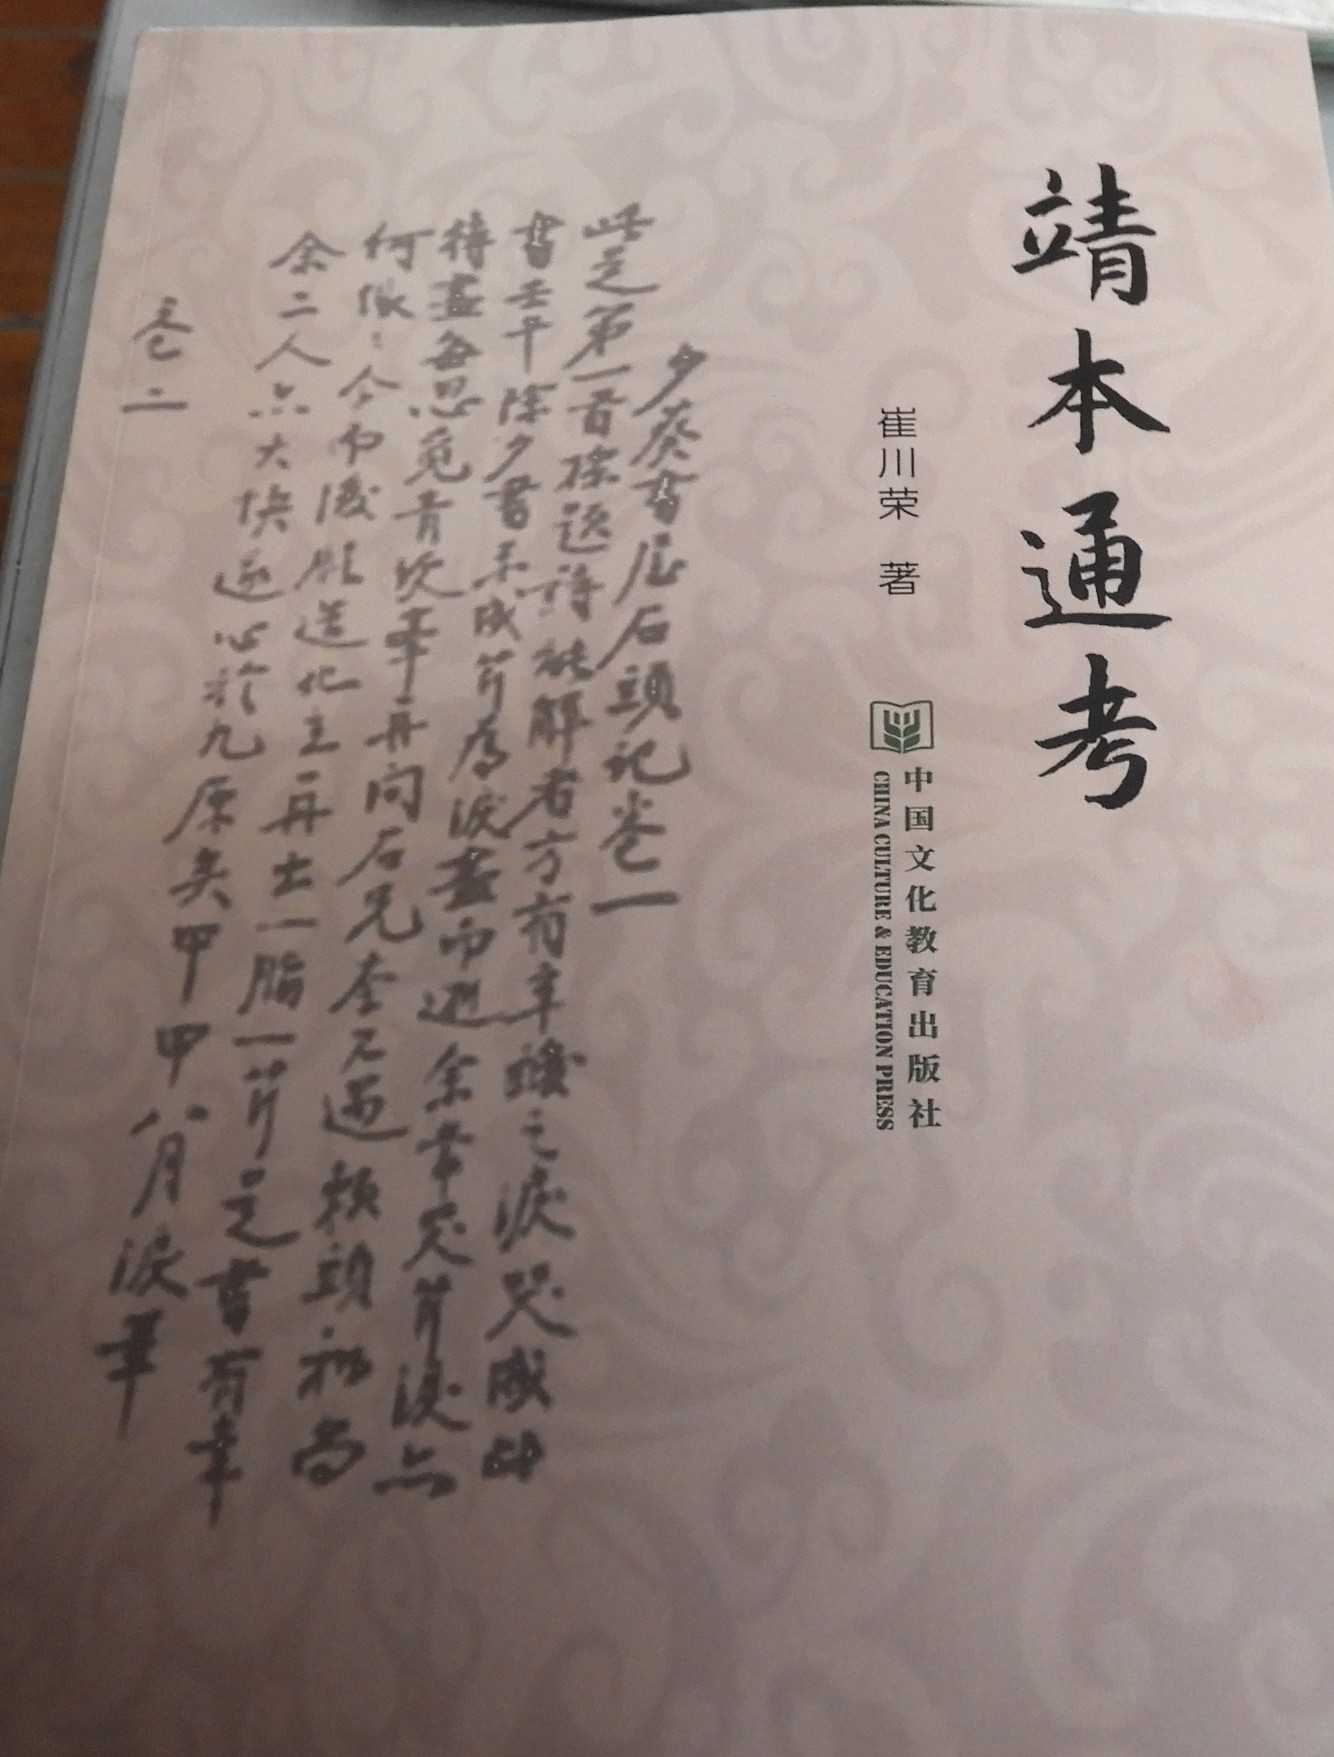 靖本通考
崔川荣 著
中国文化教育出版社
CHINA CULTURE & EDUCATION PRESS
夕葵書屋石頭記卷一
此是第一首標題詩能解者方有辛酸之淚哭成此
書壬午除夕書未成芹為淚盡而逝余常哭芹淚亦
待盡每思覓青埂峯再问石兄奈不遇賴頭和尚
何悵〻今而後願造化主再出一脂一芹是書有幸
余二人亦大快遂心於九原矣甲申八月淚筆
卷二